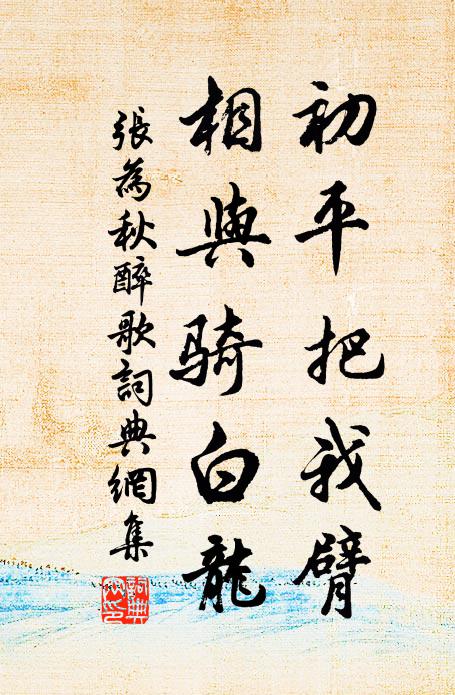 初平把我臂
相與騎白龍
張為秋醉歌詞典網集